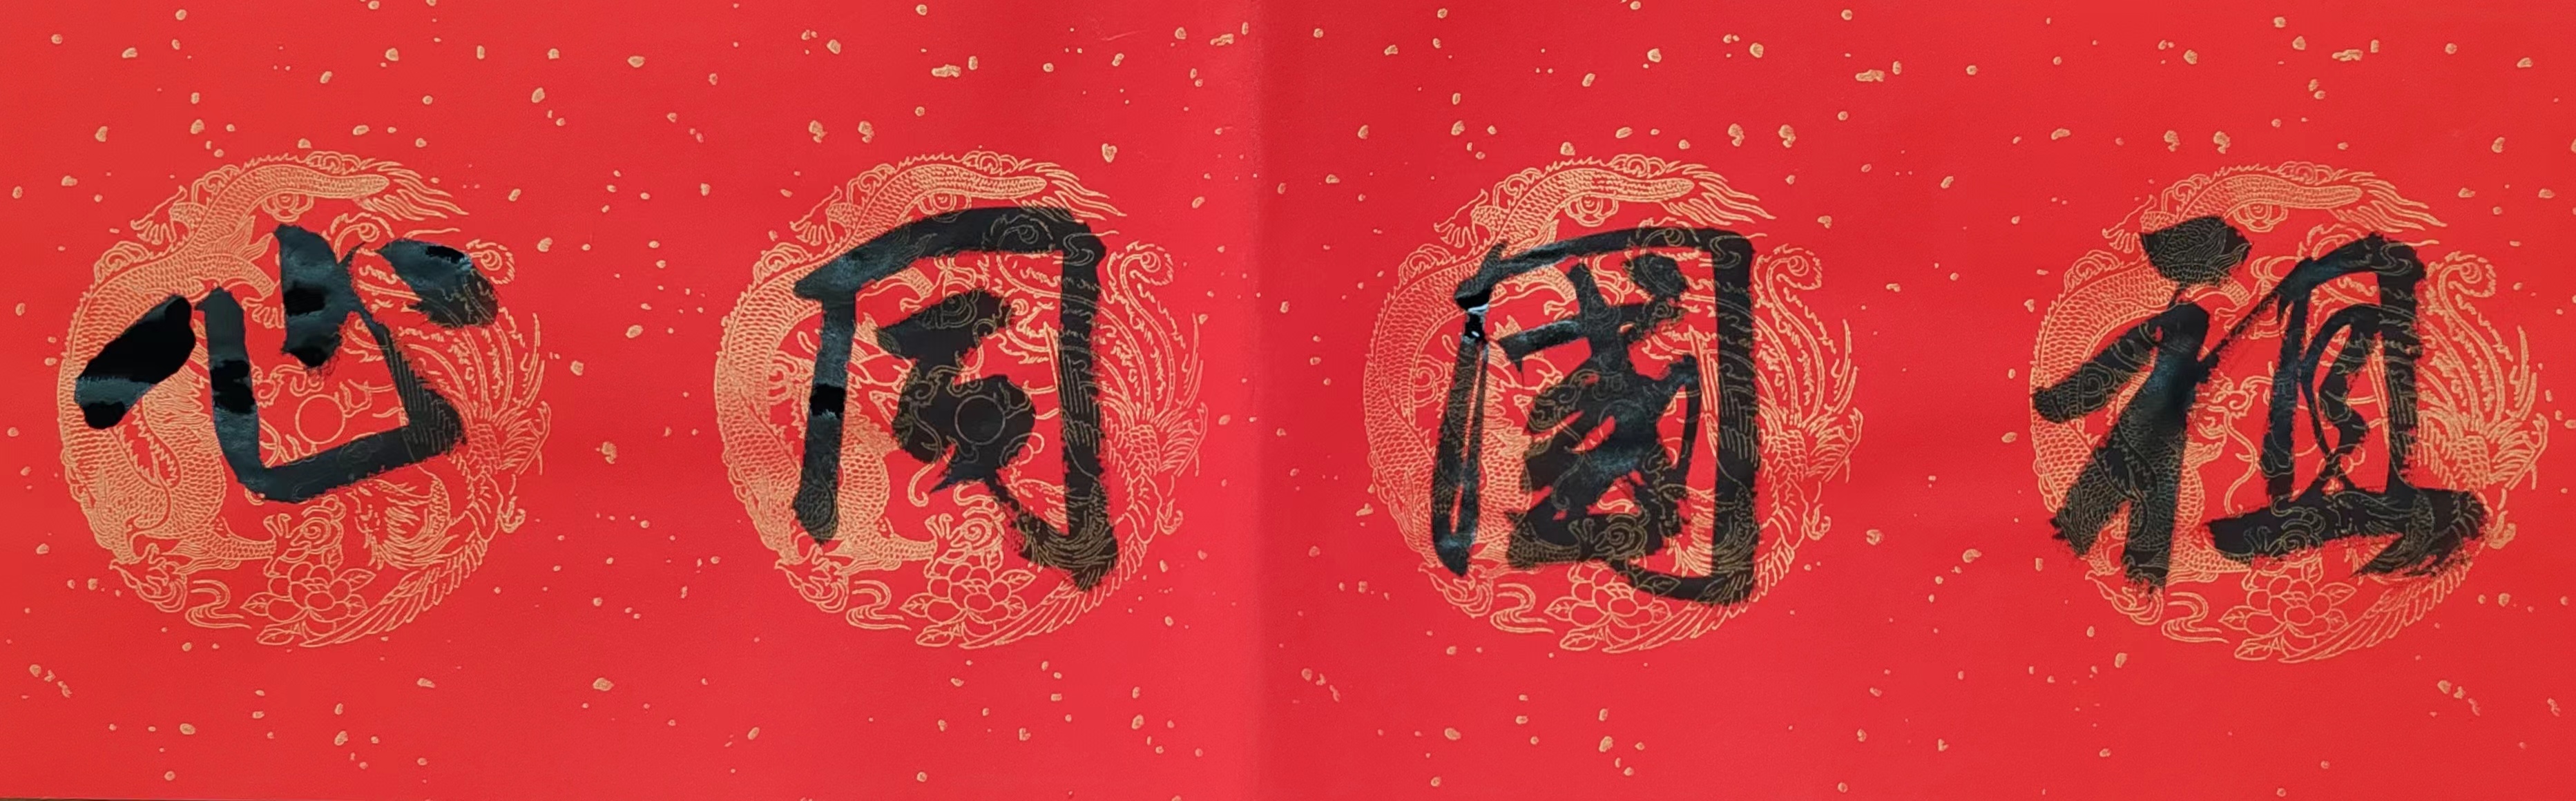 祖國同心